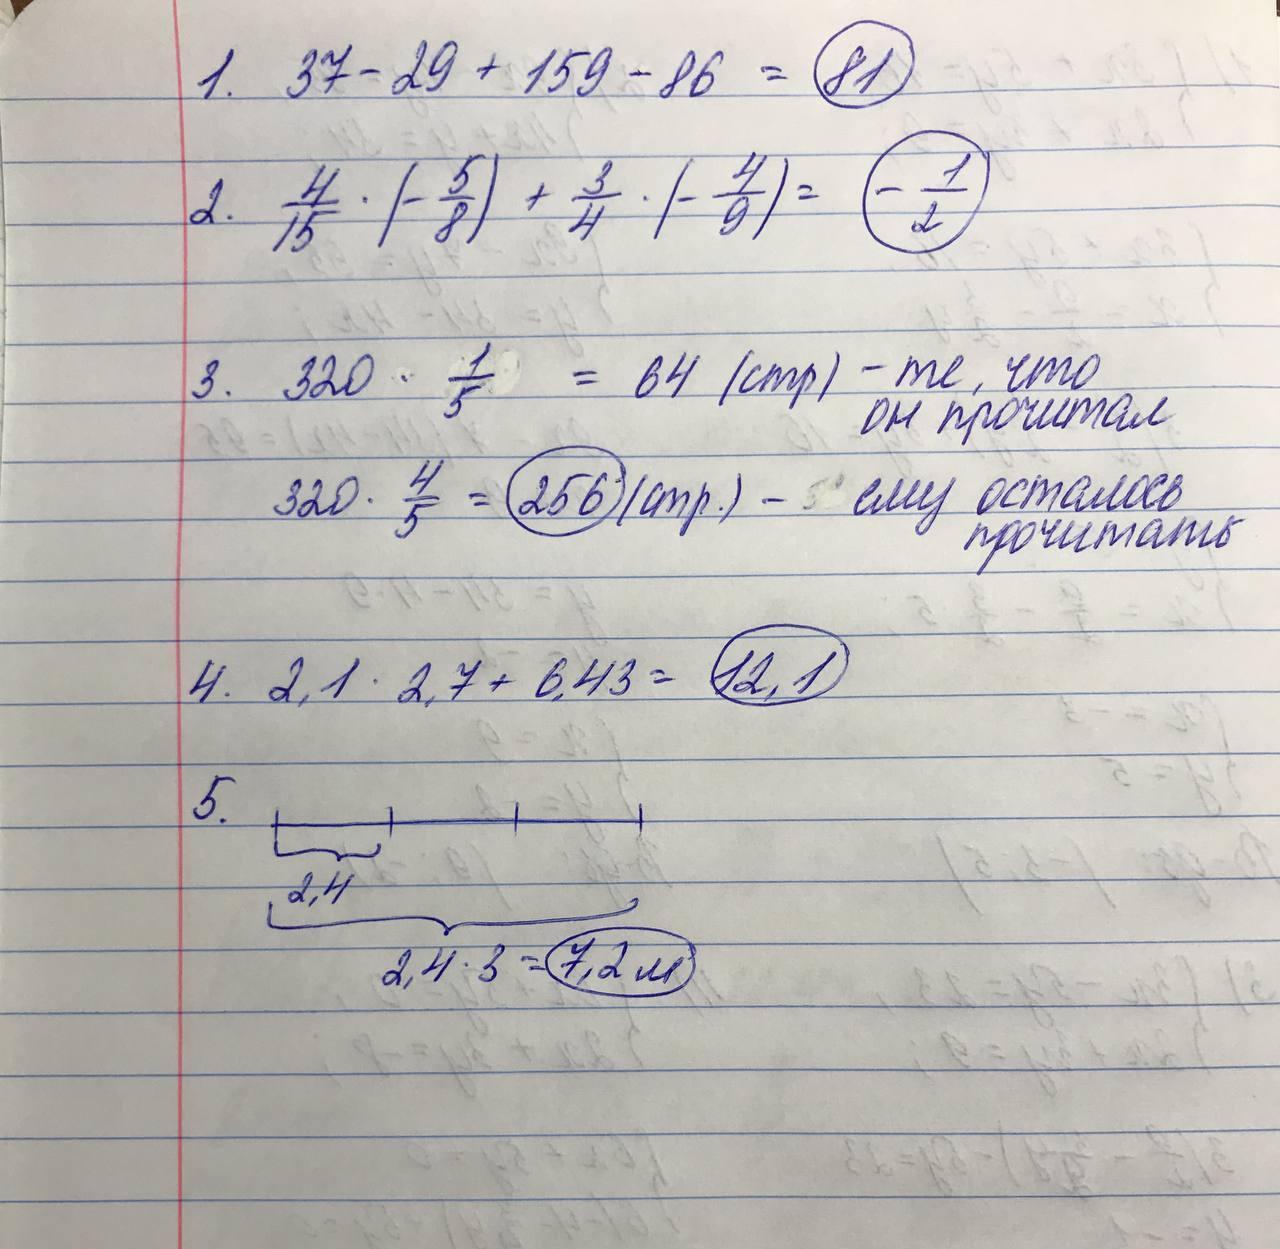 1. 37 - 29 + 159 - 86 = 81
2. 4/15 · (- 5/8) + 3/4 · (- 4/9) = - 1/2
3. 320 · 1/5 = 64 (стр) - те, что
он прочитал
320 · 4/5 = 256 (стр.) - ему осталось
прочитать
4. 2,1 · 2,7 + 6,43 = 12,1
5.
2,4
2,4 · 3 = 7,2 м